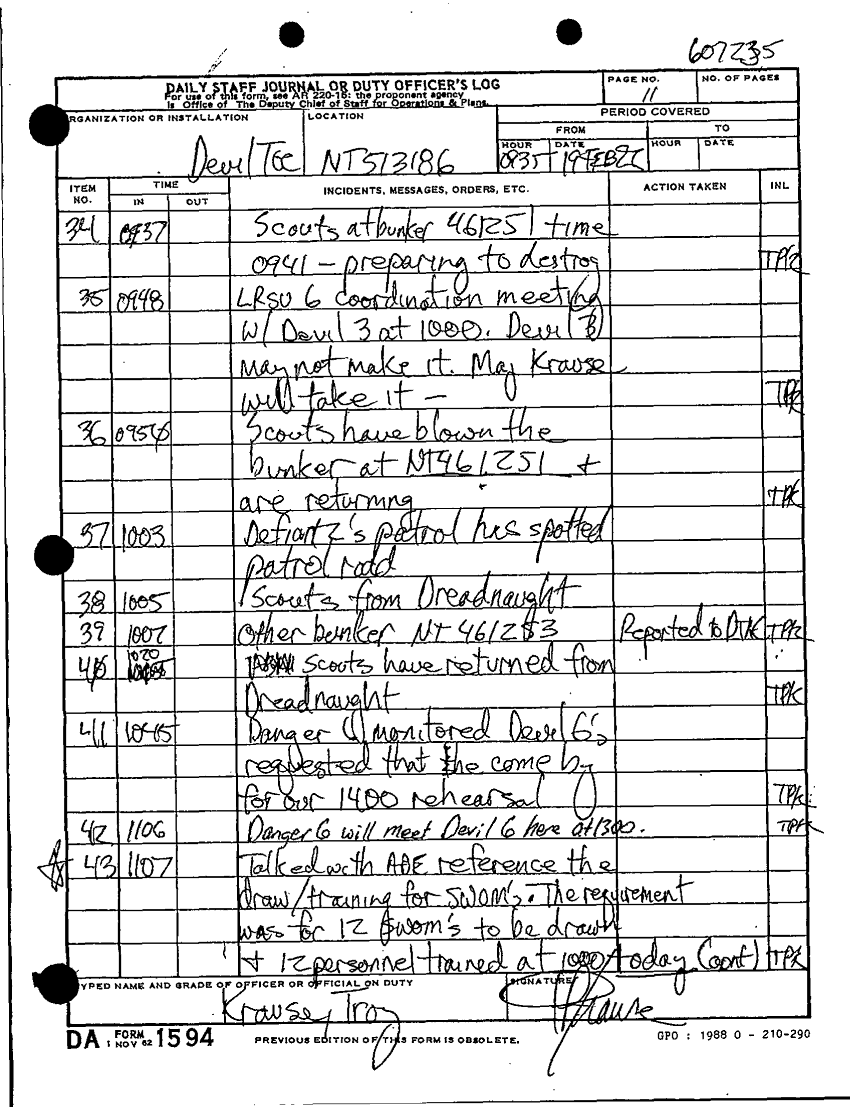 607235
DAILY STAFF JOURNAL OR DUTY OFFICER'S LOG
For use of this form, see AR 220-15; the proponent agency
is Office of The Deputy Chief of Staff for Operations & Plans.
PAGE NO.
11
NO. OF PAGES
RGANIZATION OR INSTALLATION
Devil TOC
LOCATION
NT573186
PERIOD COVERED
FROM
TO
HOUR
DATE
HOUR
DATE
0935
19 FEB
ITEM NO.
TIME
IN
OUT
INCIDENTS, MESSAGES, ORDERS, ETC.
ACTION TAKEN
INL
34 0937 Scouts at bunker 461251 time
0941 - preparing to destroy TPK
35 0948 LRSU 6 coordination meeting
w/ Devil 3 at 1000. Devil 3
may not make it. Maj Krause
will take it - TPK
36 0956 Scouts have blown the
bunker at NT461251 +
are returning TPK
37 1003 Defiant 2's patrol has spotted
patrol road
38 1005 Scouts from Dreadnaught
39 1007 Other bunker NT 461253 Reported to TPK
40 1020 scouts have returned from
Dreadnaught TPK
41 1045 Danger monitored Devil 6's
requested that he come by
for our 1400 rehearsal TPK
42 1106 Danger 6 will meet Devil 6 here at 1300. TPK
43 1107 Talked with ADE reference the
draw/training for SWOM's. The requirement
was for 12 swom's to be drawn
+ 12 personnel trained at 1000 today (cont) TPK
TYPED NAME AND GRADE OF OFFICER OR OFFICIAL ON DUTY
Krause, Troy
SIGNATURE
Krause
DA FORM 1 NOV 62 1594
PREVIOUS EDITION OF THIS FORM IS OBSOLETE.
GPO : 1988 O - 210-290